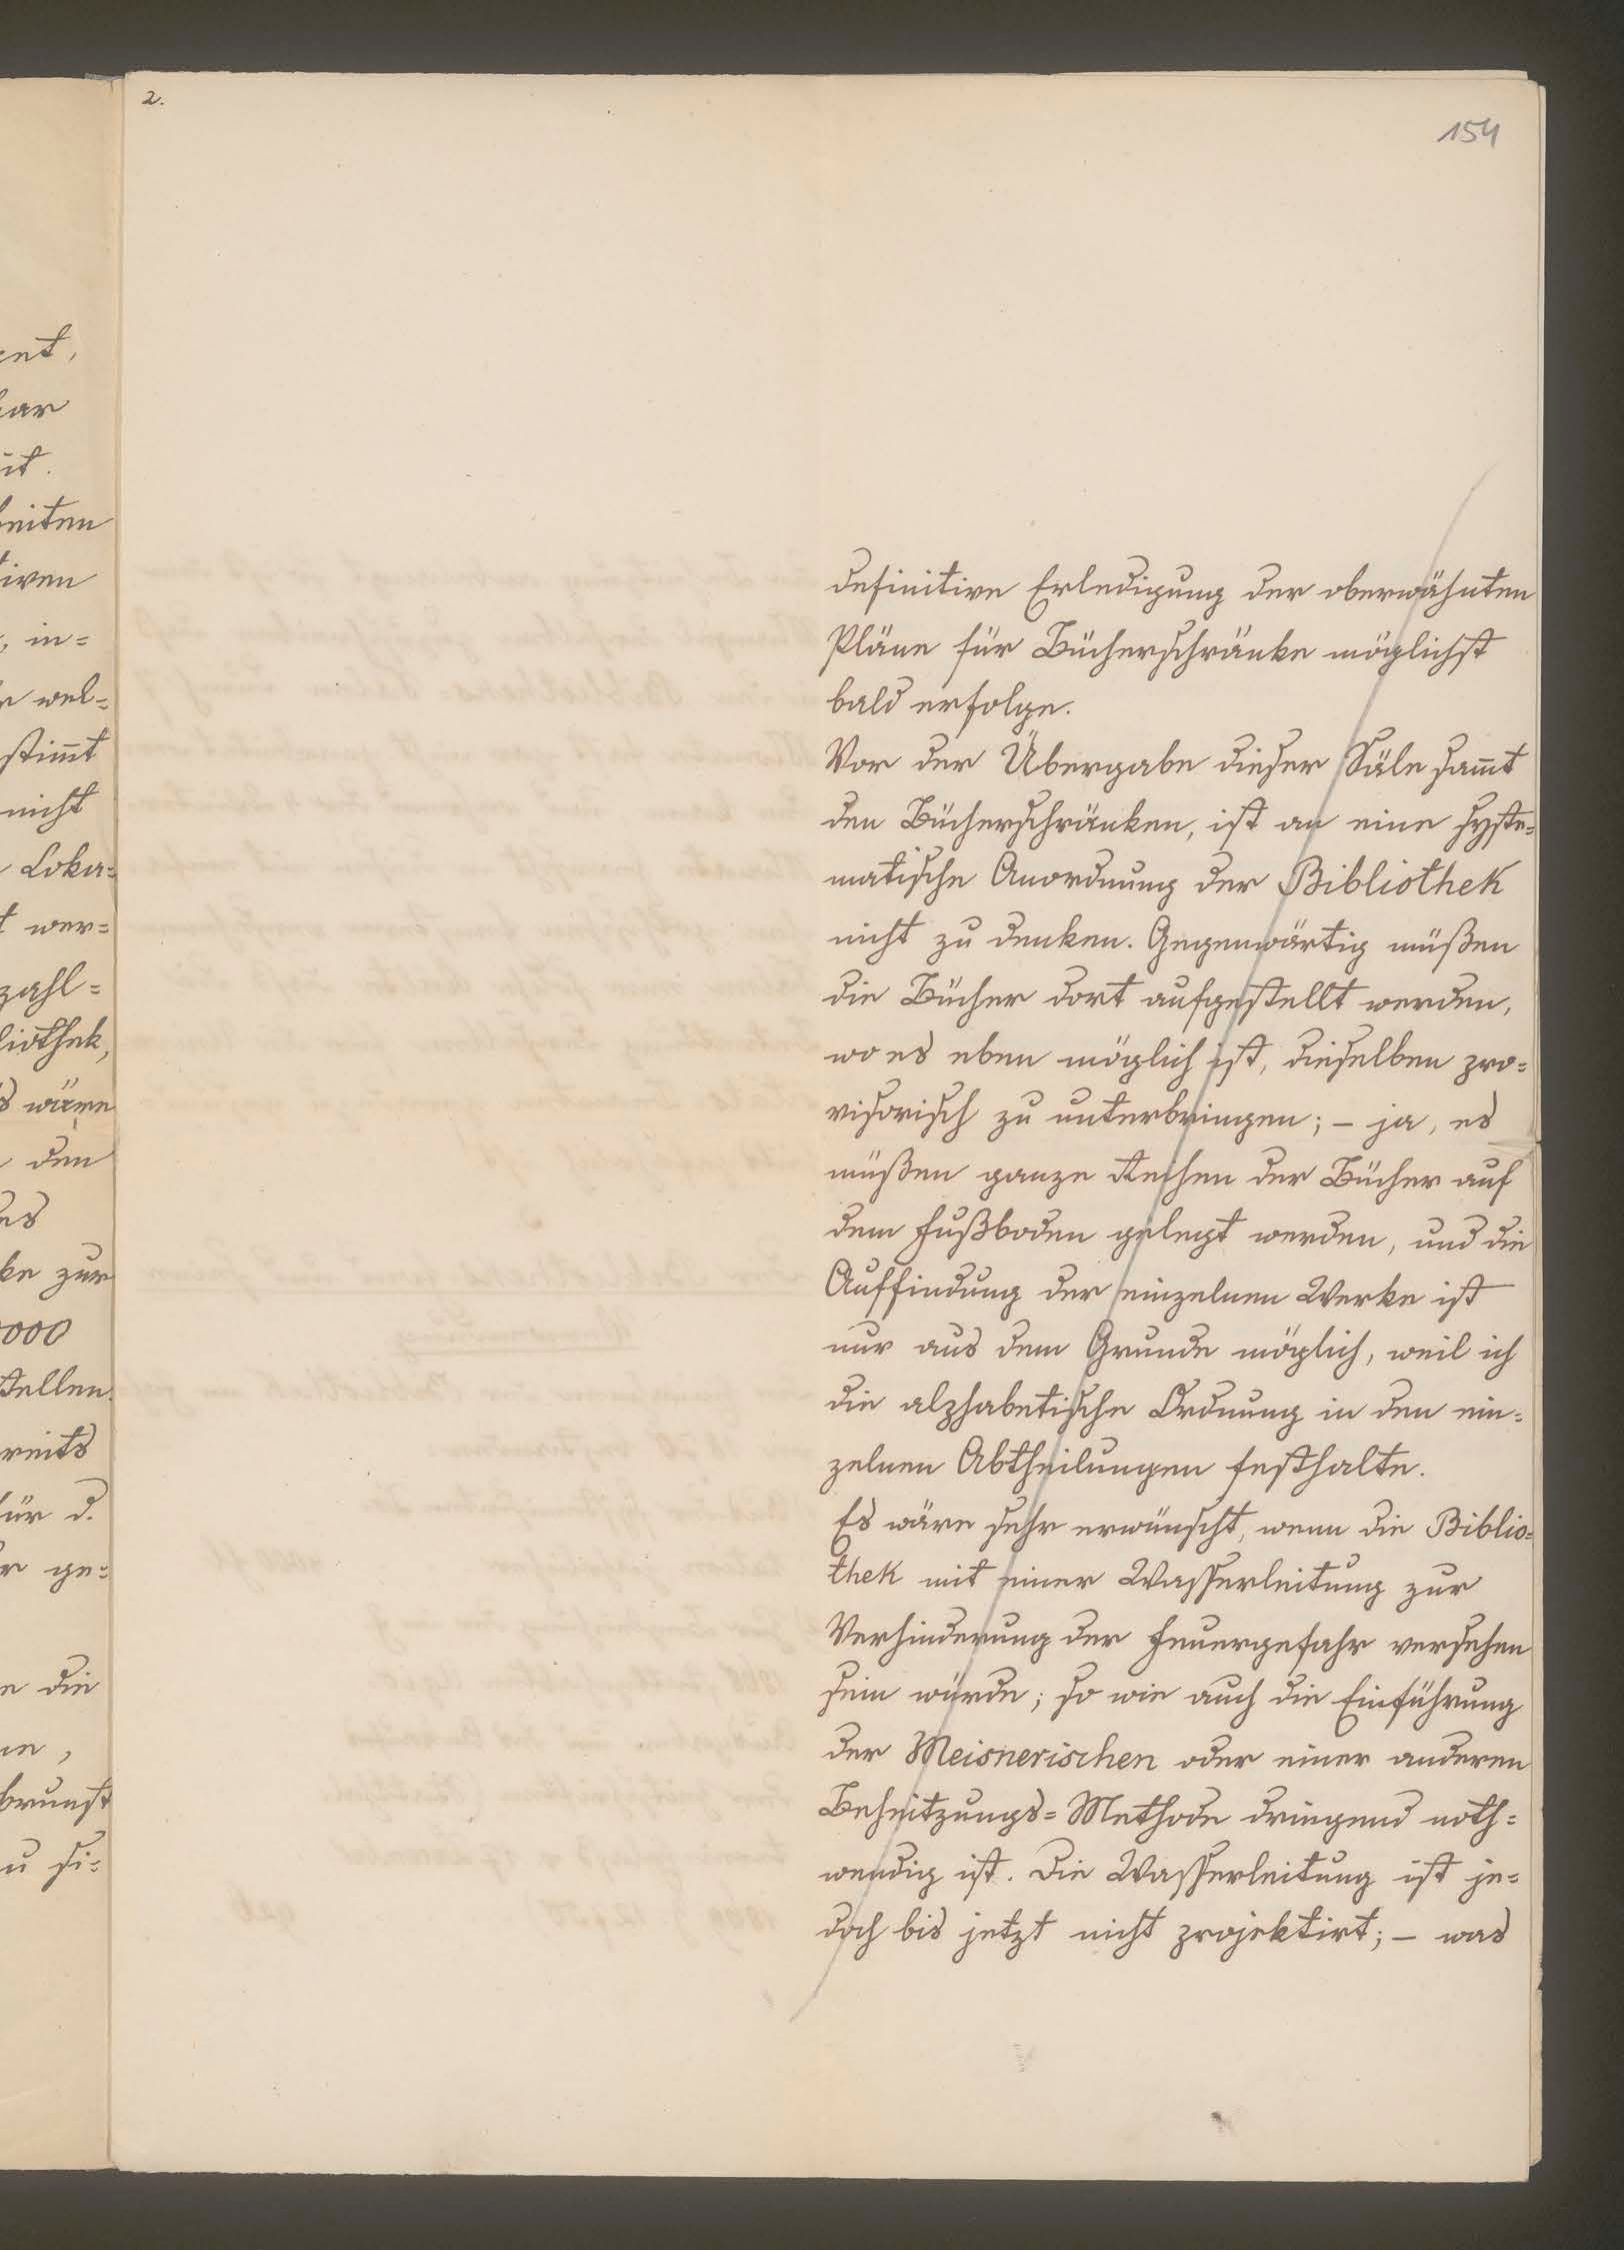 2.
154
ent,
bar
it.
beiten
tiven
, in=
r wel=
stim̄t
nicht
Loka=
t wer=
zahl=
liothek,
s wäre
den
es
ke zur
000
stellen.
reits
für d.
r ge=
e die
en,
brunst
u si=
definitive Erledigung der oberwähnten
Pläne für Bücherschränke möglichst
bald erfolge.
Vor der Übergabe dieser Säle sam̄t
den Bücherschränken, ist an eine syste=
matische Anordnung der Bibliothek
nicht zu denken. Gegenwärtig müßen
die Bücher dort aufgestellt werden,
wo es eben möglich ist, dieselben pro=
visorisch zu unterbringen; – ja, es
müßen ganze Reihen der Bücher auf
dem Fußboden gelegt werden, und die
Auffindung der einzelnen Werke ist
nur aus dem Grunde möglich, weil ich
die alphabetische Ordnung in den ein=
zelnen Abtheilungen festhalte.
Es wäre sehr erwünscht, wenn die Biblio=
thek mit einer Wasserleitung zur
Verhinderung der Feuergefahr versehen
sein würde; so wie auch die Einführung
der Meisnerischen oder einer anderen
Beheitzungs=Methode dringend noth=
wendig ist. Die Wasserleitung ist je=
doch bis jetzt nicht projektirt; – was